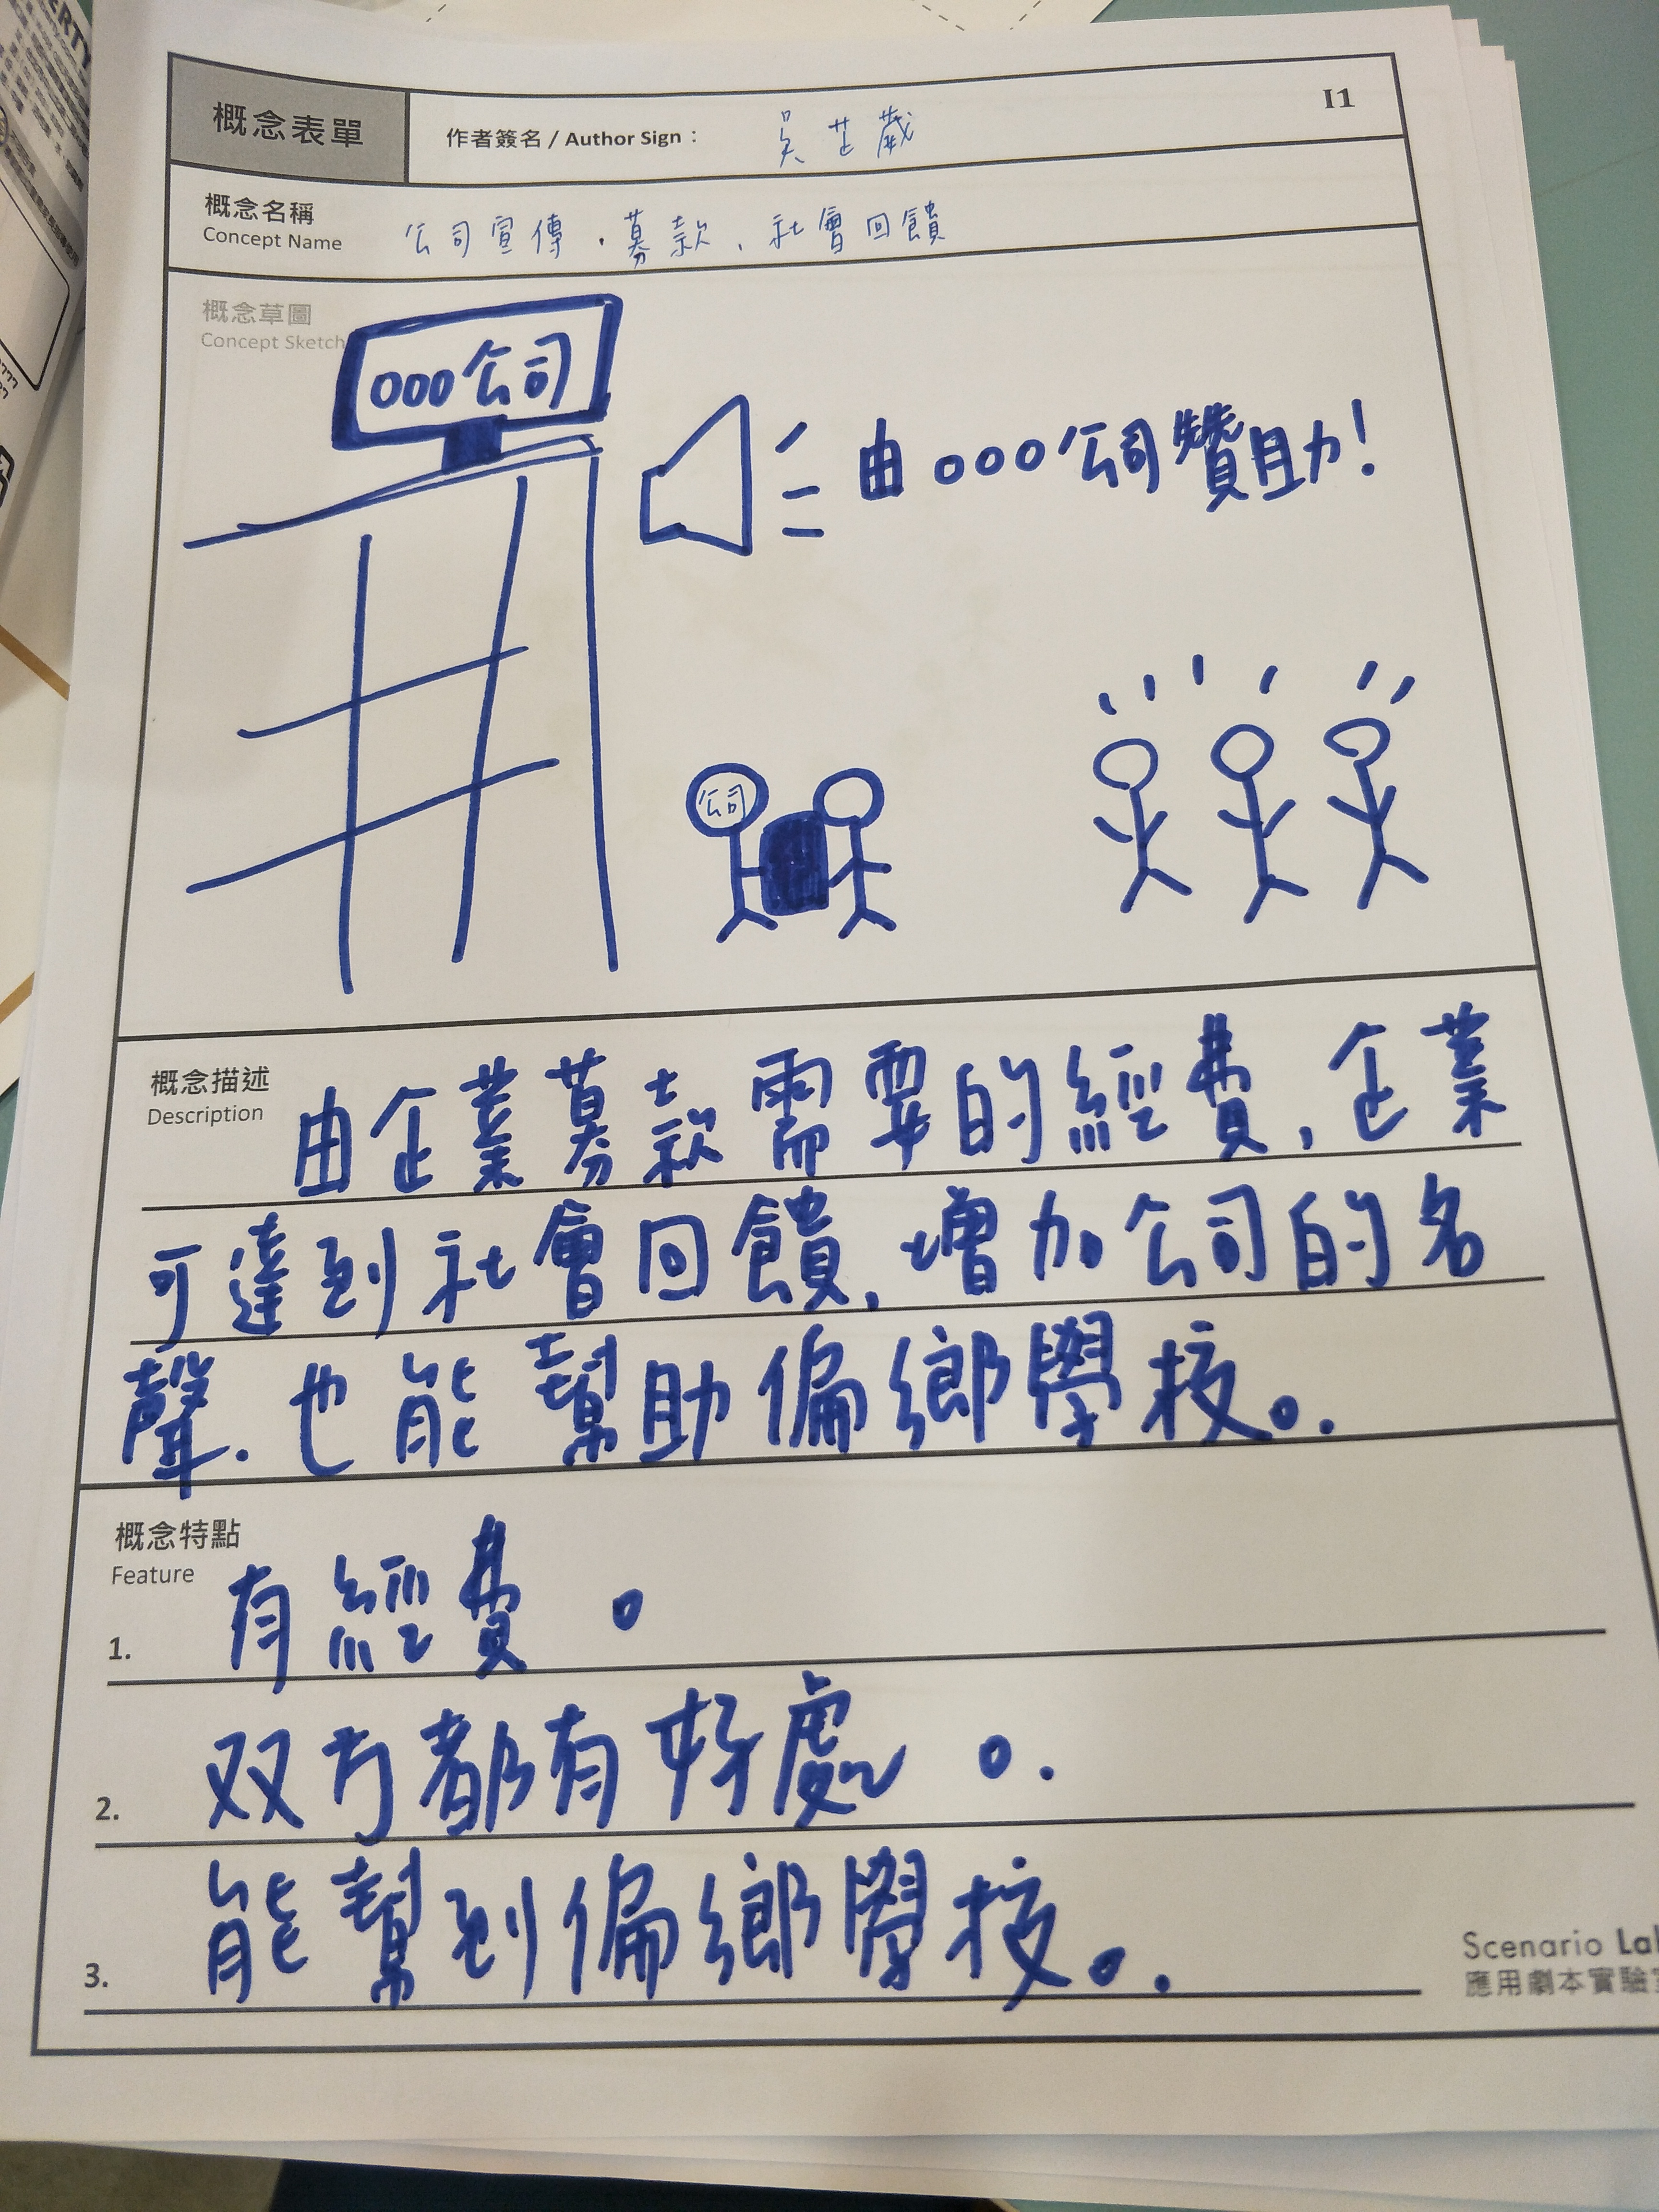 概念表單
作者簽名 / Author Sign：
I1
概念名稱
Concept Name
公司宣傳、募款、社會回饋
概念草圖
Concept Sketch
OOO公司
由OOO公司贊助！
公司
概念描述
Description
由企業募款需要的經費，企業
可達到社會回饋，增加公司的名
聲．也能幫助偏鄉學校。
概念特點
Feature
1. 有經費。
2. 双方都有好處。
3. 能幫到偏鄉學校。
Scenario Lab
應用劇本實驗室